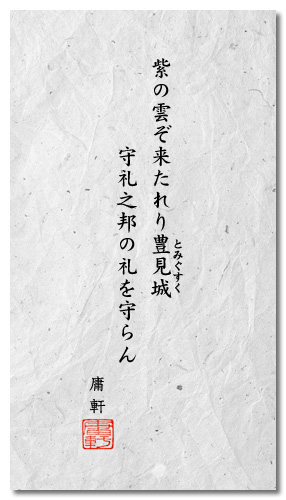 紫の雲ぞ来たれり豊見城
とみぐすく
守礼之邦の礼を守らん
庸軒
庸軒